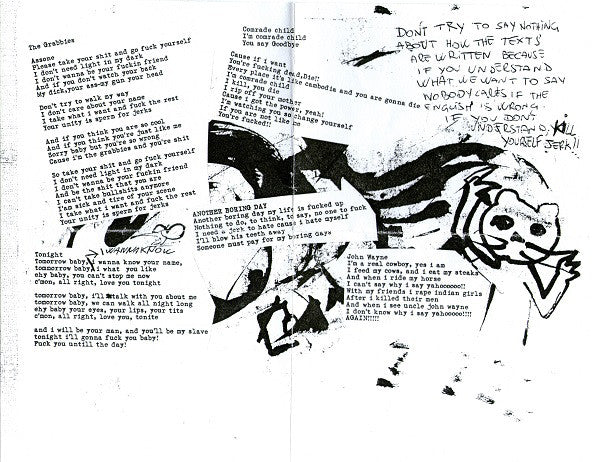 The Grabbies
Assone
Please take your shit and go fuck yourself
I don't need light in my dark
I don't wanna be your fuckin friend
And if you don't watch your back
My dick,your ass-my gun your head
Don't try to walk my way
I don't care about your name
I take what i want and fuck the rest
Your unity is sperm for jerks
And if you think you are so cool
And if you think you're just like me
Sorry baby but you're so wrong
Cause i'm the grabbies and you're shit
So take your shit and go fuck yourself
I don't need light in my dark
I don't wanna be your fuckin friend
And be the shit that you are
I can't take bullshits anymore
I'am sick and tire of your scene
I take what i want and fuck the rest
Your unity is sperm for jerks
I WANNA KNOW
Tonight
tomorrow baby, i wanna know your name,
tomorrow baby, i what you like
ehy baby, you can't stop me now
c'mon, all right, love you tonight
tomorrow baby, i'll talk with you about me
tomorrow baby, we can walk all night long
ehy baby your eyes, your lips, your tits
c'mon, all right, love you, tonite
and i will be your man, and you'll be my slave
tonight i'll gonna fuck you baby!
Fuck you untill the day!
Comrade child
I'm comrade child
You say Goodbye
Cause if i want
You're fucking dead,Die!!
Every place it's like cambodia and you are gonna die
I'm comrade child
I kill, you die
I rip off your mother
Cause i got the power, yeah!
I'm watching you so change yourself
If you are not like me
You're fucked!!
ANOTHER BORING DAY
Another boring day my life is fucked up
Nothing to do, to think, to say, no one to fuck
I need a jerk to hate cause i hate myself
I'll blow his teeth away
Someone must pay for my boring days
John Wayne
I'm a real cowboy, yes i am
I feed my cows, and i eat my steaks
And when i ride my horse
I can't say why i say yahooooo!!
With my friends i rape indian girls
After i killed their men
And when i see uncle john wayne
I don't know why i say yahooooo!!!!
AGAIN!!!!!
DON'T TRY TO SAY NOTHING
ABOUT HOW THE TEXTS
ARE WRITTEN BECAUSE
IF YOU UNDERSTAND
WHAT WE WANT TO SAY
NOBODY CARES IF THE
ENGLISH IS WRONG.
IF YOU DON'T
UNDERSTAND, KILL
YOURELF JERK!!